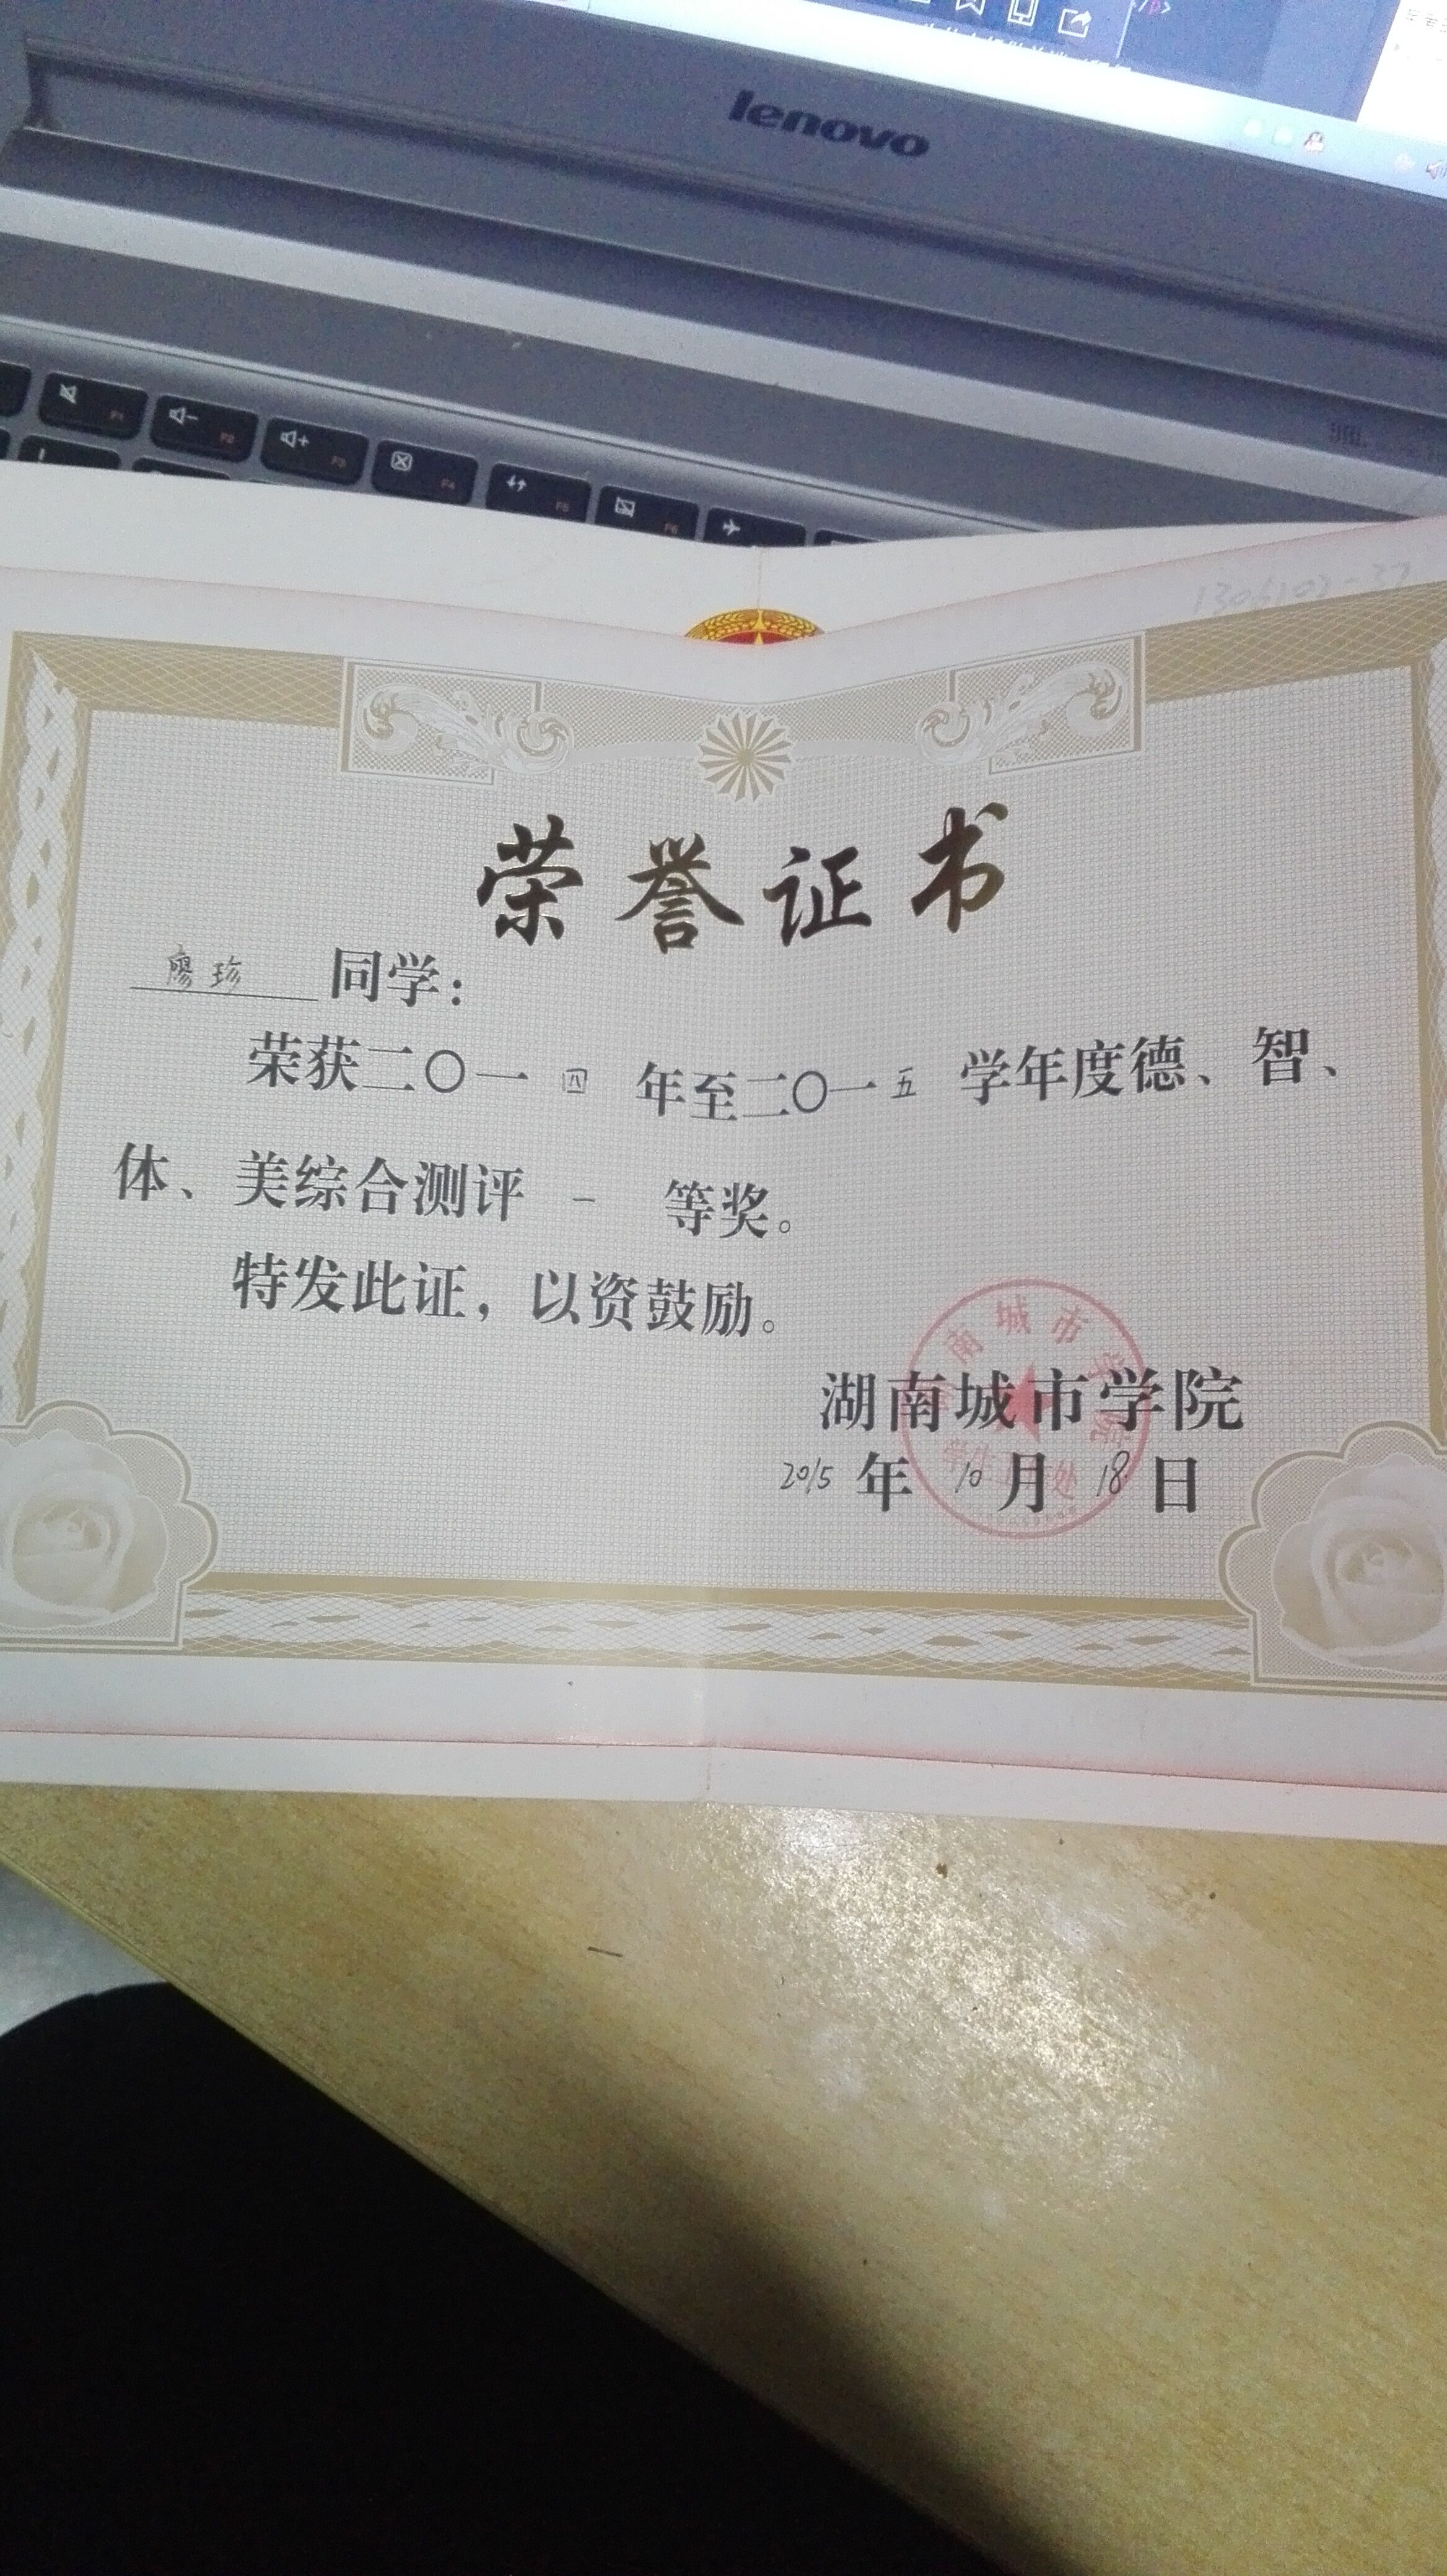 lenovo
F1
F2
F3
F4
F5
F6
1306102-37
荣誉证书
廖珍 同学：
荣获二〇一四年至二〇一五学年度德、智、
体、美综合测评 一 等奖。
特发此证，以资鼓励。
湖南城市学院
2015年10月18日
南城市学院
学生 处